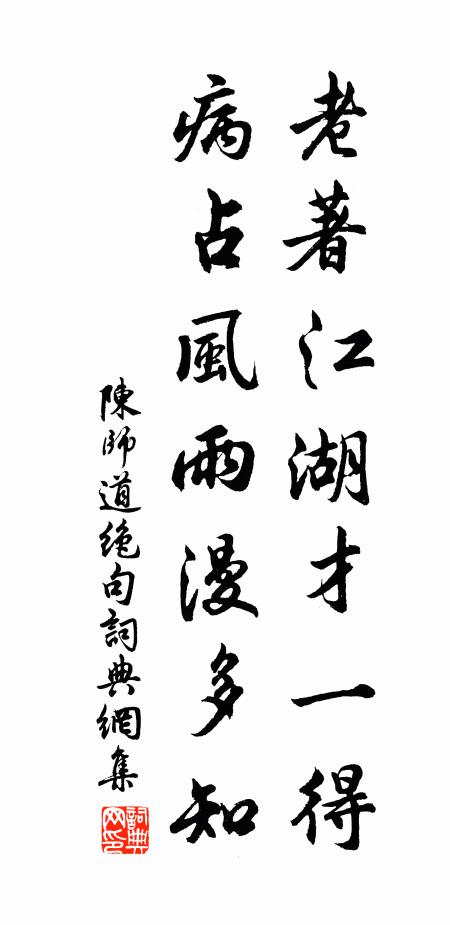 老著江湖才一得
病占風雨漫多知
陳師道絶句詞典網集
詞典网印